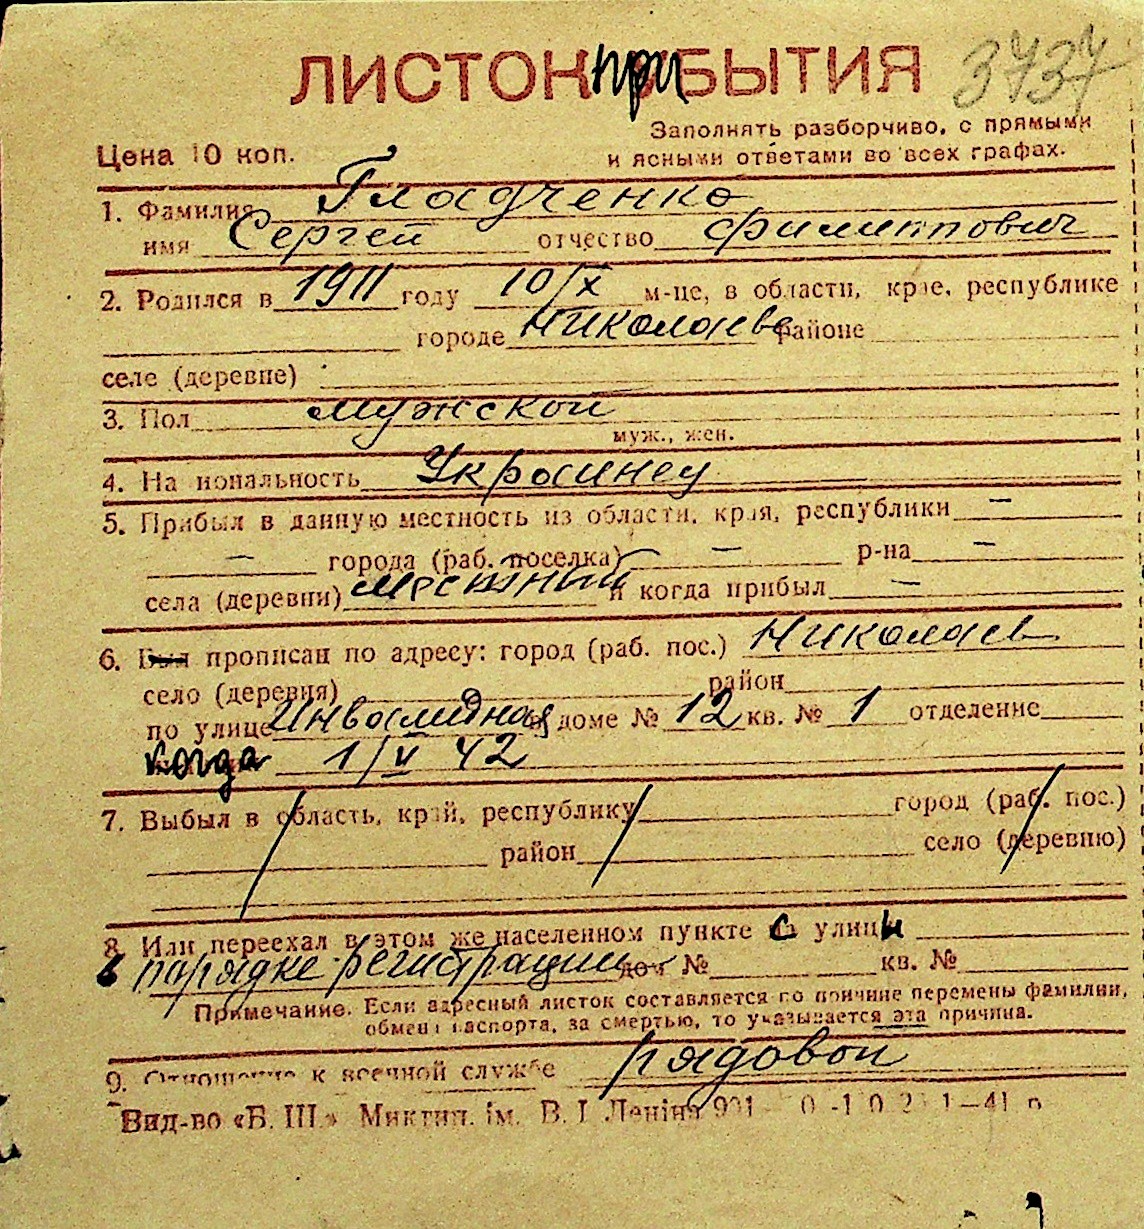 ЛИСТОК прИБЫТИЯ
3737
Заполнять разборчиво, с прямыми
и ясными ответами во всех графах.
Цена 10 коп.
1. Фамилия Гладченко
имя Сергей отчество Филиппович
2. Родился в 1911 году 10/X м-це, в области, крае, республике
городе Николаеве районе
селе (деревне)
3. Пол мужской
муж., жен.
4. Национальность Украинец
5. Прибыл в данную местность из области, края, республики –
– города (раб. поселка) – р-на –
села (деревни) местный и когда прибыл –
6. Был прописан по адресу: город (раб. пос.) Николаев
село (деревня) район
по улице Инвалидная в доме № 12 кв. № 1 отделение
когда 1/V 42
7. Выбыл в область, край, республику город (раб. пос.)
район село (деревню)
8. Или переехал в этом же населенном пункте с улицы
в порядке регистрации дом № кв. №
Примечание. Если адресный листок составляется по причине перемены фамилии,
обмена паспорта, за смертью, то указывается эта причина.
9. Отношение к военной службе рядовой
Вид-во «Б. Ш.» Миктип. ім. В. І Леніна